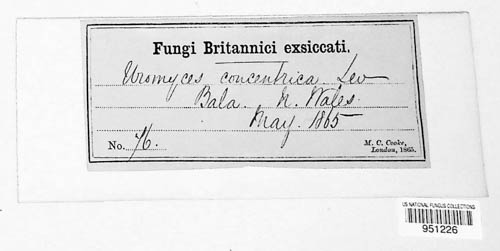 Fungi Britannici exsiccati.
Uromyces concentrica Lev
Bala. N. Wales.
May. 1865
No. 76.
M. C. Cooke,
London, 1865.
US NATIONAL FUNGUS COLLECTIONS
951226